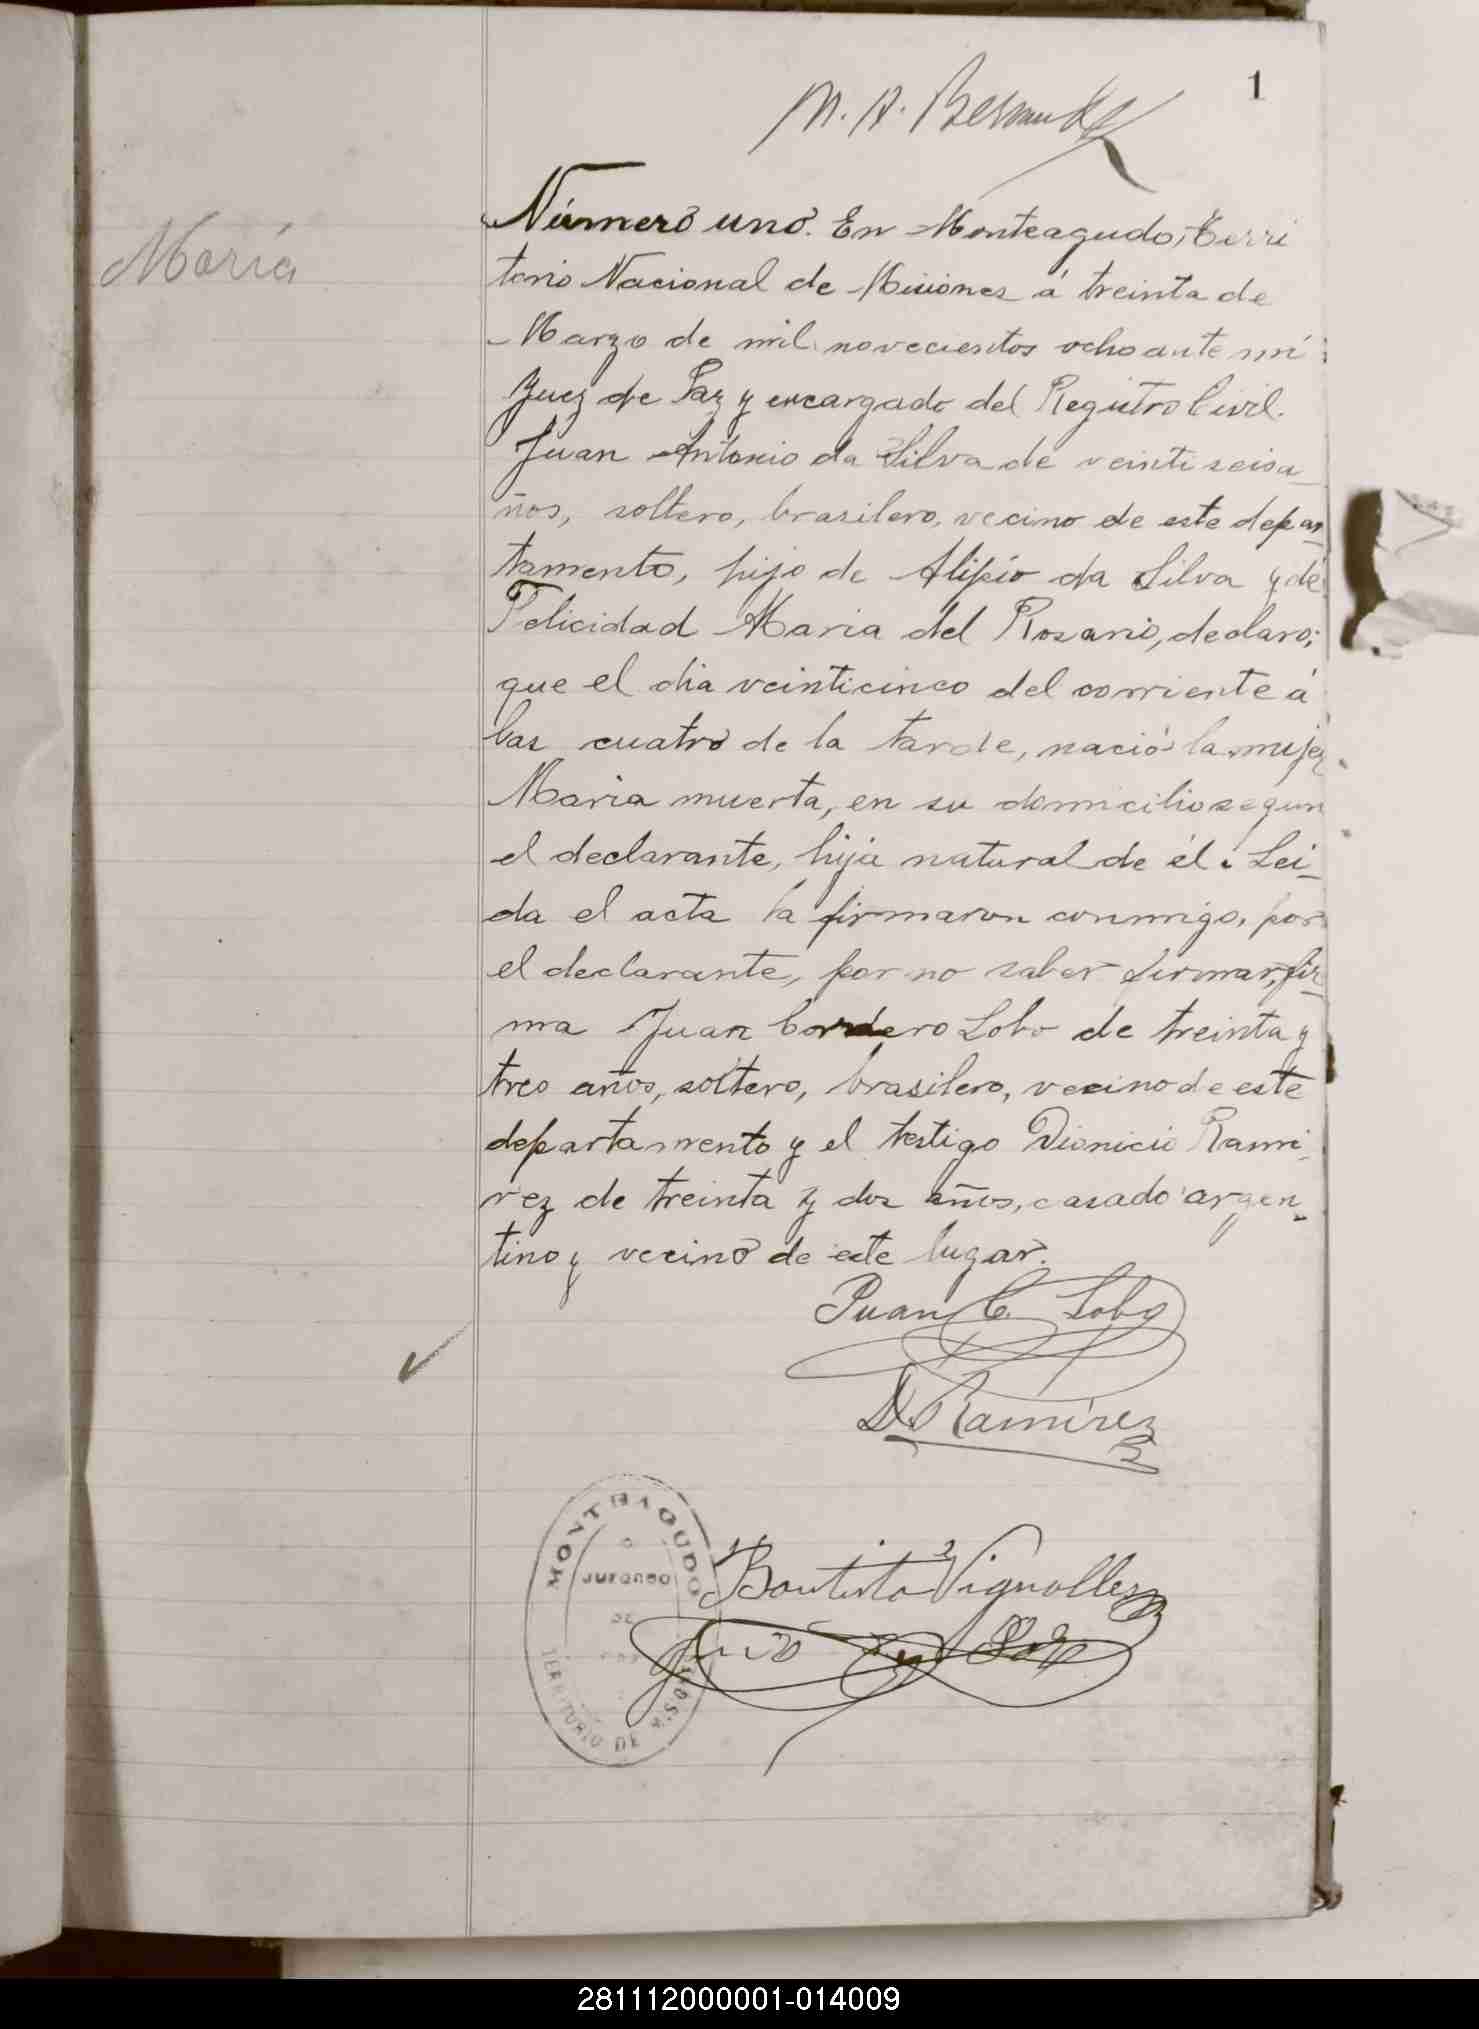 1
María
Número uno. En Monteagudo, Terri
torio Nacional de Misiones á treinta de
Marzo de mil novecientos ocho ante mí
Juez de Paz y encargado del Registro Civil.
Juan Antonio da Silva de veintiseis a_
ños, soltero, brasilero, vecino de este depar_
tamento, hijo de Alipio da Silva y de
Felicidad Maria del Rosario, declaro;
que el dia veinticinco del corriente á
las cuatro de la tarde, nació la mujer
Maria muerta, en su domicilio segun
el declarante, hija natural de él. Lei_
da el acta la firmaron conmigo, por
el declarante, por no saber firmar, fir_
ma Juan Cordero Lobo de treinta y
tres años, soltero, brasilero, vecino de este
departamento y el testigo Dionicio Rami_
rez de treinta y dos años, casado argen_
tino y vecino de este lugar.
Juan C. Lobo
D Ramírez
MONTEAGUDO
JUZGADO
DE
PAZ
TERRITORIO DE MISIONES
Bautista Vignolles
Juez de Paz
281112000001-014009